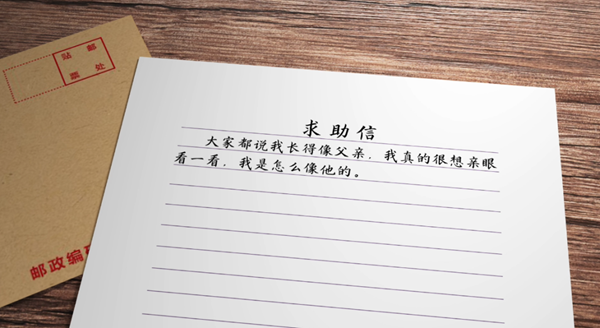 贴 邮
票 处
求助信
大家都说我长得像父亲，我真的很想亲眼
看一看，我是怎么像他的。
邮政编